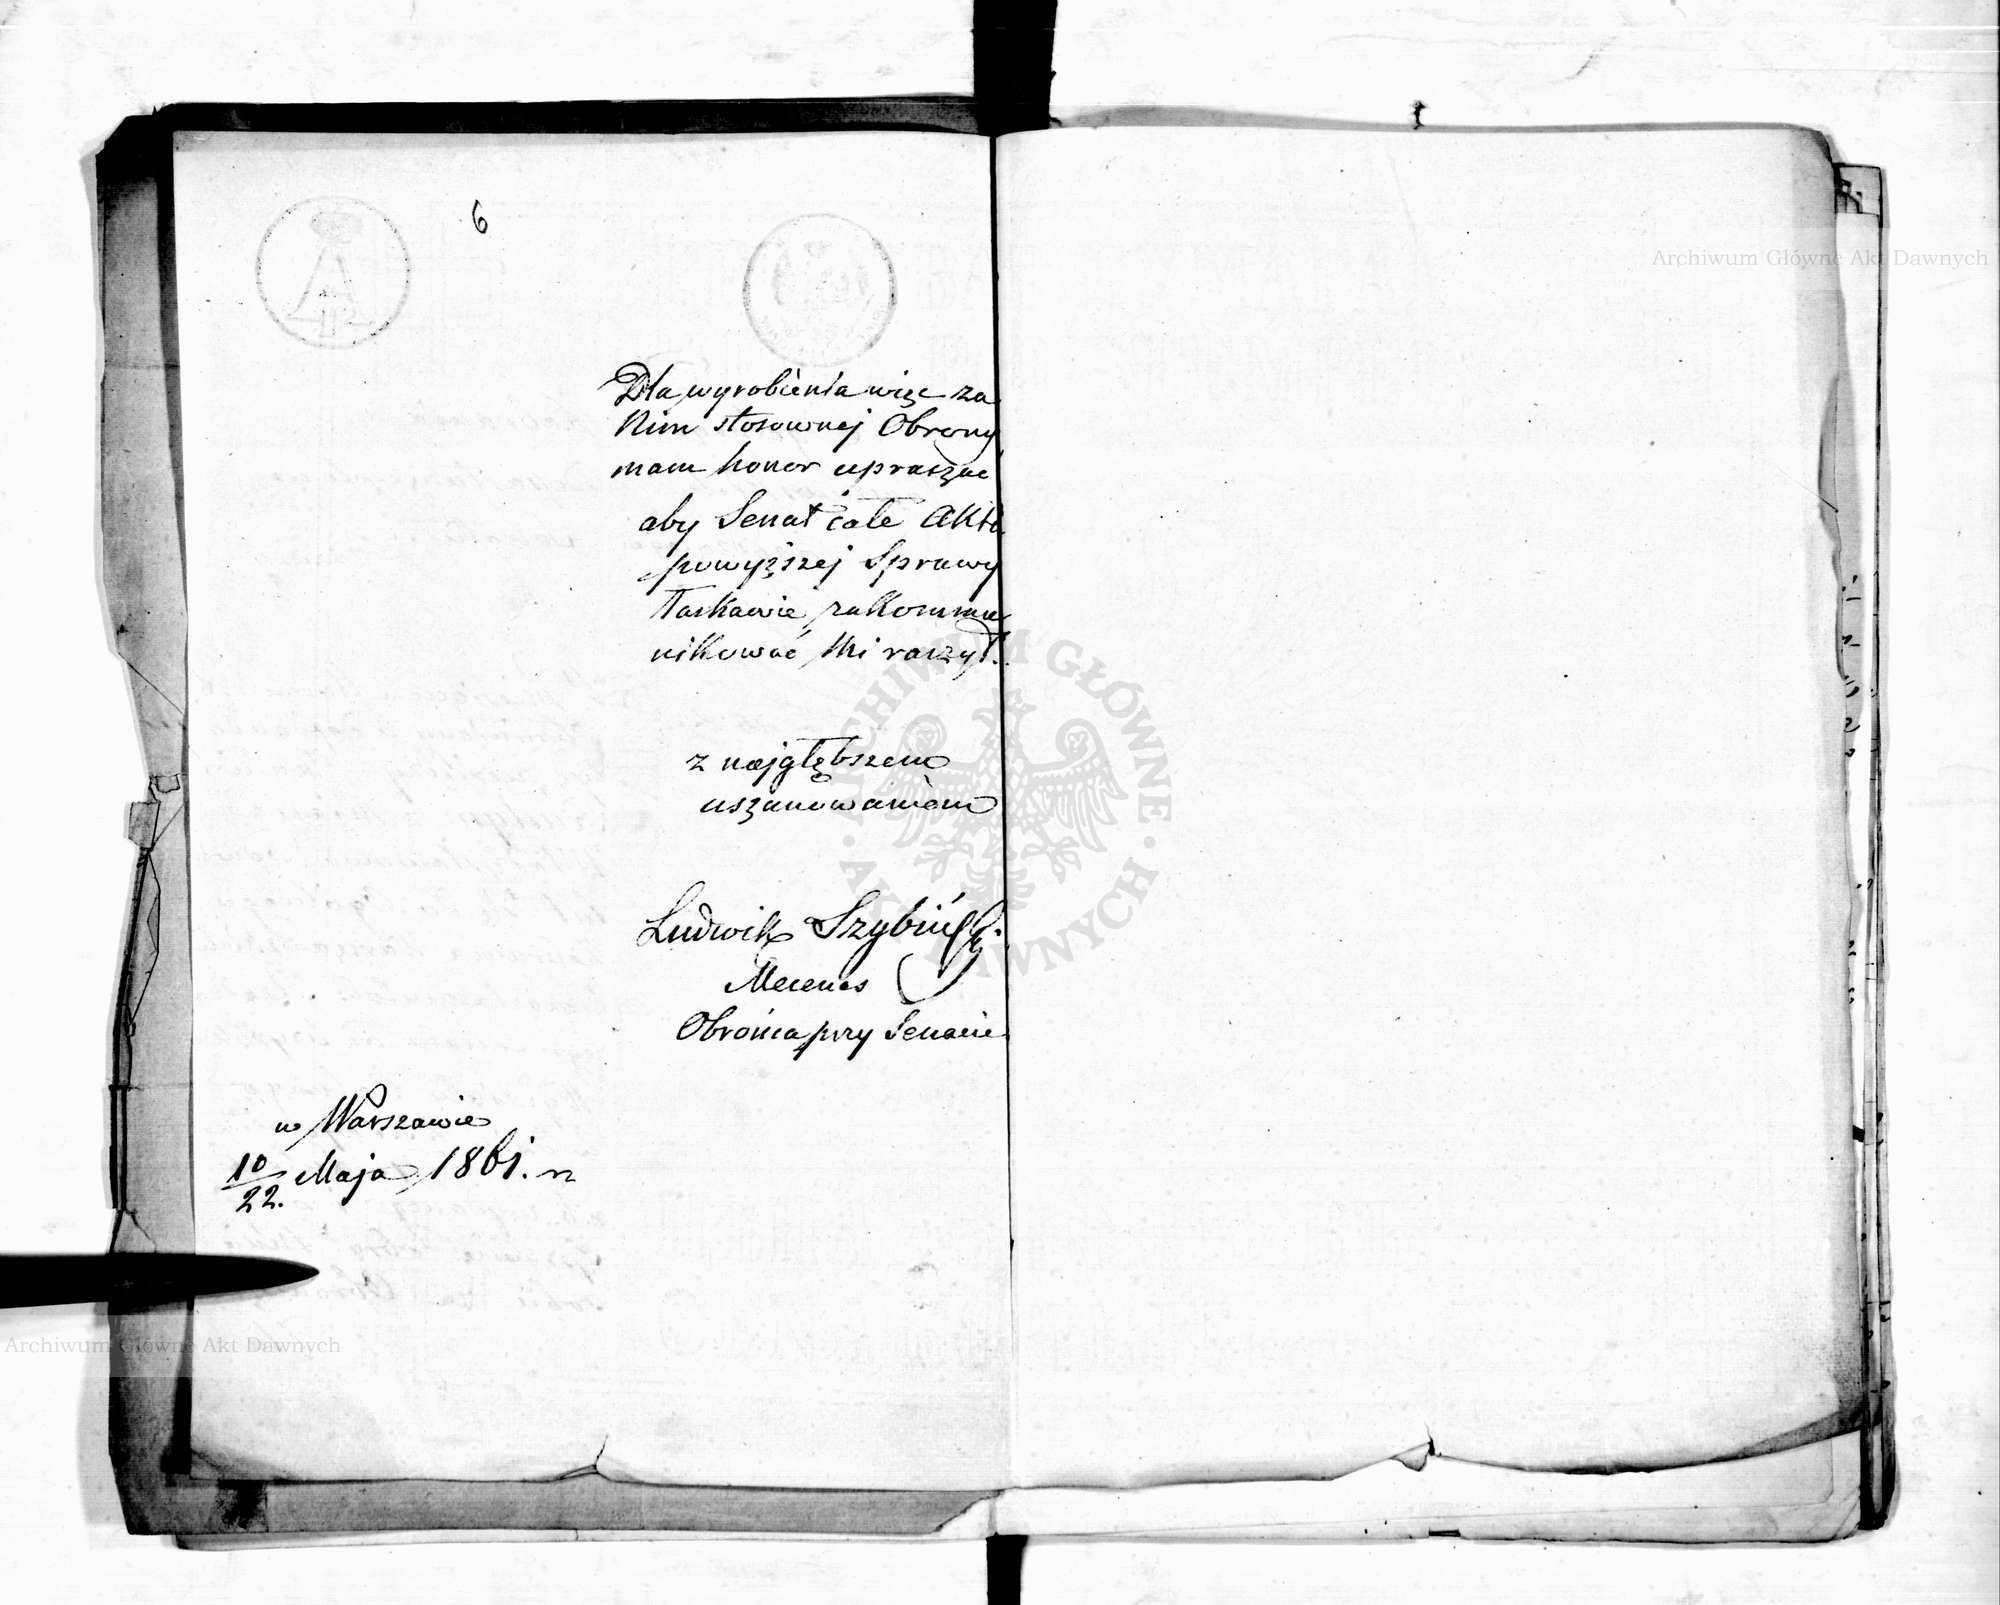 6
Dla wyrobienia więc za
Nim stosownej Obrony
mam honor upraszać
aby Senat całe Akta
powyższej Sprawy
łaskawie zakommu
nikować Mi raczył.
z najgłębszem
uszanowaniem
Ludwik Szybiński
Mecenas
Obrońca przy Senacie
w Warszawie
10/22. Maja 1861. r.
Archiwum Główne Akt Dawnych
Archiwum Główne Akt Dawnych
ARCHIWUM GŁÓWNE · AKT DAWNYCH ·